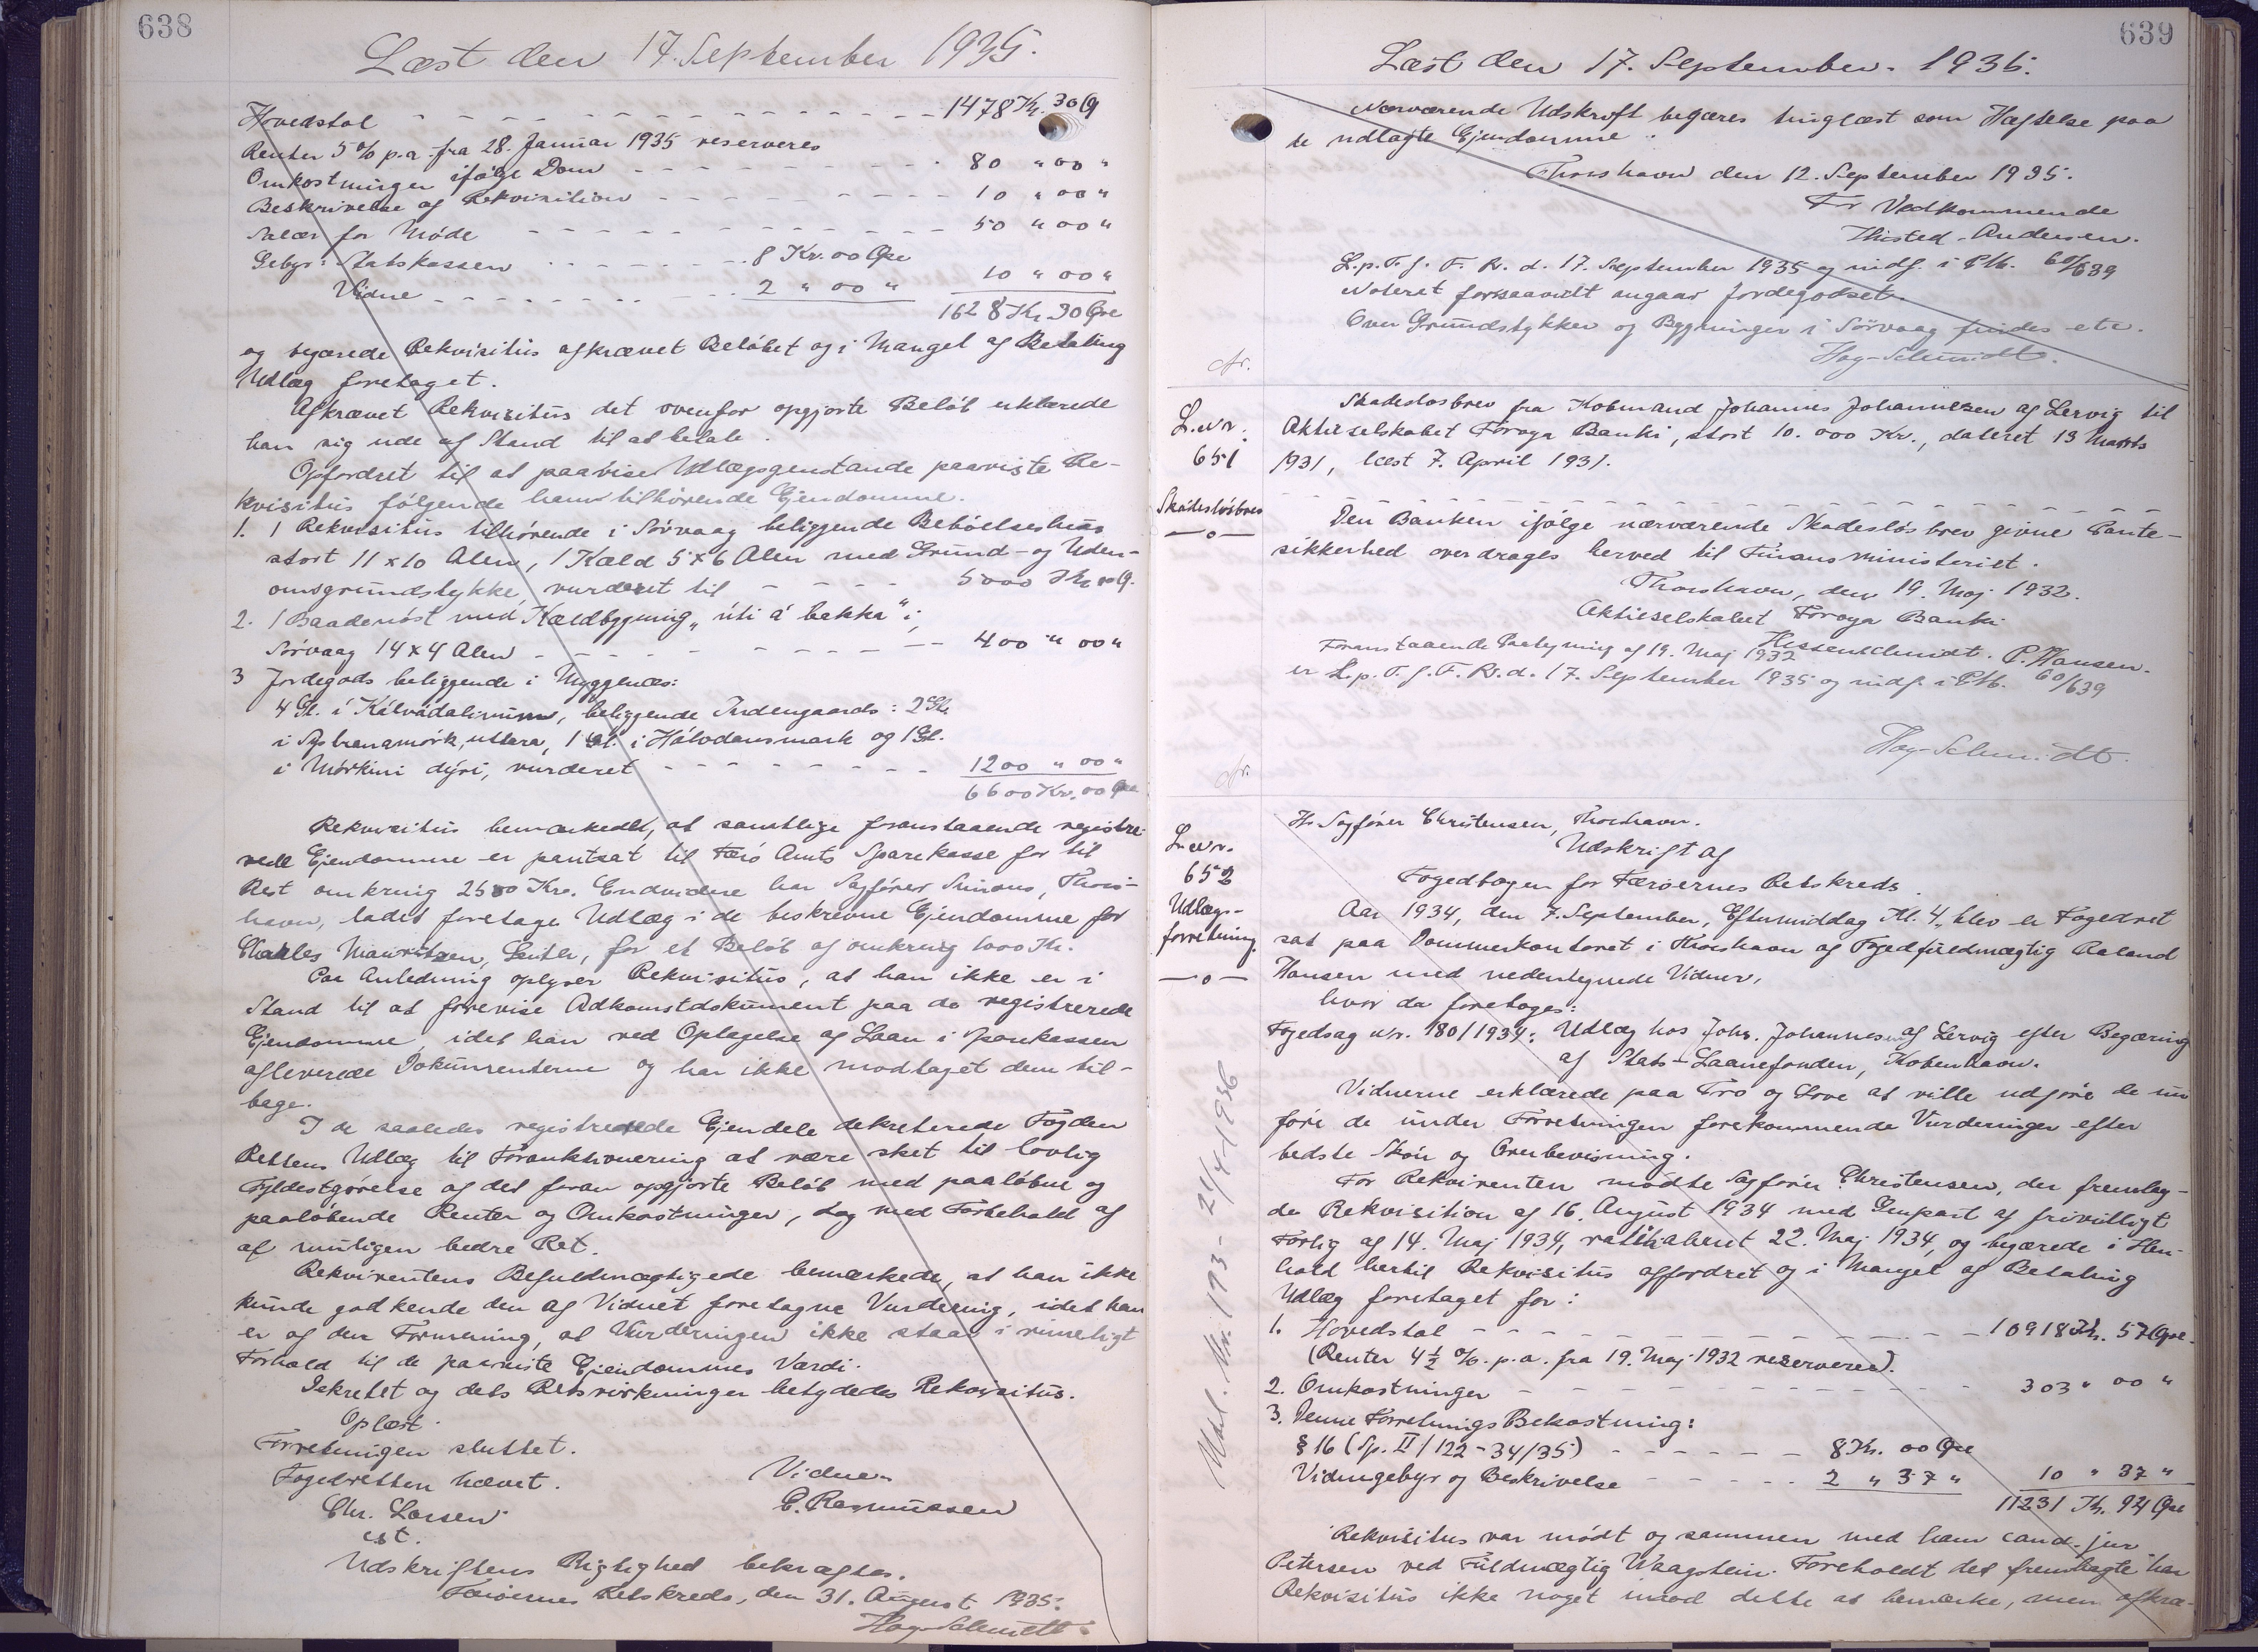 638
Læst den 17. September 1935.
Hovedstol - - - - - - - - - - 1478 Kr. 30 Ø
Renter 5 % p.a. fra 28. Januar 1935 reserveres
Omkostninger ifølge Dom - - - - - - - - - 80 " 00 "
Beskrivelse og Rekvisition - - - - - - - - 10 " 00 "
Salær for Møde - - - - - - - - - - - 50 " 00 "
Gebyr: Statskassen - - - - - 8 Kr. 00 Øre
Vidne - - - - - - - - 2 " 00 " 10 " 00 "
1628 Kr. 30 Øre
og begærede Rekvisitus afkrævet Beløbet og i Mangel af Betaling
Udlæg foretaget.
Afkrævet Rekvisitus det ovenfor opgjorte Beløb erklærede
han sig ude af Stand til at betale.
Opfordret til at paavise Udlægsgenstande paaviste Re-
kvisitus følgende ham tilhørende Ejendomme.
1. 1 Rekvisitus tilhørende i Sörvaag beliggende Beboelseshus
stort 11 x 10 Alen, 1 Kæld 5 x 6 Alen med Grund- og Uden-
omsgrundstykke, vurderet til - - - - 5000 Kr. 00 Ø.
2. 1 Baadenøst med Kældbygning „úti á bakka" i
Sörvaag 14 x 4 Alen - - - - - - - - - - 400 " 00 "
3 Jordegods beliggende i Myggenæs:
4 Gl. i Kálvadalinum, beliggende Indengaards: 2 Gl.
i uttara, 1 Gl. i Hálvdansmark og 1 Gl.
i Mörkini dýri, vurderet - - - - - - - - 1200 " 00 "
6600 Kr. 00 Øre
Rekvisitus bemærkede, at samtlige foranstaaende registre-
rede Ejendomme er pantsat til Færø Amts Sparekasse for til
Rest omkring 2500 Kr. Endvidere har Sagfører Simons, Thors-
havn, ladet foretage Udlæg i de beskrevne Ejendomme for
Charles Mauritzen, Leith, for et Beløb af omkring 1000 Kr.
Paa Anledning oplyser Rekvisitus, at han ikke er i
Stand til at forevise Adkomstdokument paa de registrerede
Ejendomme, idet han ved Optagelse af Laan i Sparekassen
afleverede Dokumenterne og har ikke modtaget dem til-
bage.
I de saaledes registrerede Ejendele dekreterede Fogden
Rettens Udlæg til Forauktionering at være sket til lovlig
Fyldestgørelse af det foran opgjorte Beløb med paaløbne og
paaløbende Renter og Omkostninger, dog med Forbehold af
af muligen bedre Ret.
Rekvirentens Befuldmægtigede bemærkede, at han ikke
kunde godkende den af Vidnet foretagne Vurdering, idet han
er af den Formening, at Vurderingen ikke staar i rimeligt
Forhold til de paaviste Ejendommes Værdi.
Dekretet og dets Retsvirkninger betydedes Rekvisitus.
Oplæst.
Forretningen sluttet.
Fogedretten hævet. Vidne
Chr. Larsen E. Rasmussen
cst.
Udskriftens Rigtighed bekræftes.
Færøernes Retskreds, den 31. August 1935.
Høg-Schmidt.
639
Læst den 17. September 1935.
Nærværende Udskrift begæres tinglæst som Hæftelse paa
de udlagte Ejendomme.
Thorshavn den 12. September 1935.
For Vedkommende
Thisted-Andersen.
L. p. T. f. F. R. d. 17. September 1935 og indf. i P.M. 60/639
Noteret forsaavidt angaar Jordegodset.
Over Grundstykker og Bygninger i Sörvaag findes etc.
Høg-Schmidt.
L. Nr.
651
Skadesløsbrev
—o—
Skadesløsbrev fra Købmand Johannes Johannesen af Lervig til
Aktieselskabet Føroya Banki, stort 10.000 Kr., dateret 13 Marts
1931, læst 7. April 1931.
Den Banken ifølge nærværende Skadesløsbrev givne Pante-
sikkerhed overdrages herved til Finansministeriet.
Thorshavn, den 19. Maj 1932.
Aktieselskabet Føroya Banki
P. Hansen.
Foranstaaende Paategning af 19. Maj 1932
er L. p. T. f. F. R. d. 17. September 1935 og indf. i P.M. 60/639
Høg-Schmidt.
L. Nr.
652
Udlægs-
forretning.
—o—
Hr. Sagfører Christensen, Thorshavn.
Udskrift af
Fogedbogen for Færøernes Retskreds.
Aar 1934, den 7. September, Eftermiddag Kl. 4, blev en Fogedret
sat paa Dommerkontoret i Thorshavn af Fogedfuldmægtig Roland
Hansen med nedentegnede Vidner,
hvor da foretoges:
Fogedsag Nr. 180/1934: Udlæg hos Johs. Johannesen af Lervig efter Begæring
af Stats-Laanefonden, København.
Vidnerne erklærede paa Tro og Love at ville udføre de
de under Forretningen forekommende Vurderinger efter
bedste Skøn og Overbevisning.
For Rekvirenten mødte Sagfører Christensen, der fremlag-
de Rekvisition af 16. August 1934 med Genpart af frivilligt
Forlig af 14. Maj 1934, ratihaberet 22. Maj 1934, og begærede i Hen-
hold hertil Rekvisitus affordret og i Mangel af Betaling
Udlæg foretaget for:
1. Hovedstol - - - - - - - - - - - 10918 Kr. 57 Øre.
(Renter 4½ % p.a. fra 19. Maj 1932 reserveres).
2. Omkostninger - - - - - - - - - - 303 " 00 "
3. Denne Forretnings Bekostning:
§ 16 (Sp. II/122-34/35) - - - - - - 8 Kr. 00 Øre
Vidnegebyr og Beskrivelse - - - - - 2 " 37 " 10 " 37 "
11231 Kr. 94 Øre
Rekvisitus var mødt og sammen med ham cand. jur.
Petersen ved Fuldmægtig Waagstein. Foreholdt det fremlagte har
Rekvisitus ikke noget imod dette at bemærke, men afkræ-
Udsl. Nr. 193 - 21/4 1936